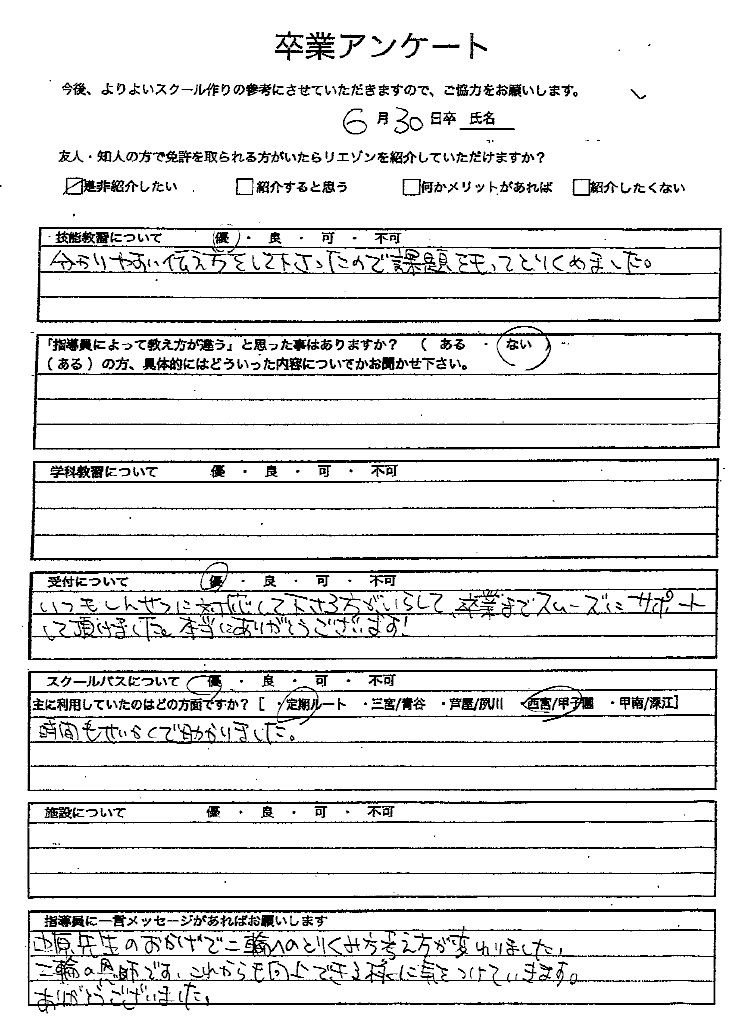 卒業アンケート
今後、よりよいスクール作りの参考にさせていただきますので、ご協力をお願いします。
6月30日卒 氏名
友人・知人の方で免許を取られる方がいたらリエゾンを紹介していただけますか?
是非紹介したい 紹介すると思う 何かメリットがあれば 紹介したくない
技能教習について 優 ・ 良 ・ 可 ・ 不可
分かりやすい伝え方をして下さったので課題をもってとりくめました。
「指導員によって教え方が違う」と思った事はありますか? ( ある ・ ない )
(ある)の方、具体的にはどういった内容についてかお聞かせ下さい。
学科教習について 優 ・ 良 ・ 可 ・ 不可
受付について 優 ・ 良 ・ 可 ・ 不可
いつもしんせつに対応して下さる方がいらして、卒業までスムーズにサポート
して頂けました。本当にありがとうございます!
スクールバスについて 優 ・ 良 ・ 可 ・ 不可
主に利用していたのはどの方面ですか? [ ・定期ルート ・三宮/青谷 ・芦屋/夙川 ・西宮/甲子園 ・甲南/深江]
時間もせいかくで助かりました。
施設について 優 ・ 良 ・ 可 ・ 不可
指導員に一言メッセージがあればお願いします
原先生のおかげで二輪へのとりくみ方考え方が変わりました。
二輪の恩師です、これからも向上できる様に気をつけていきます。
ありがとうございました。